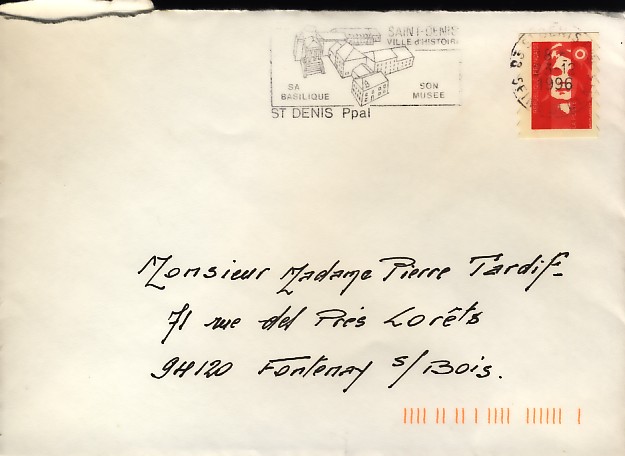 SAINT-DENIS
VILLE d'HISTOIRE
SA
BASILIQUE
SON
MUSEE
ST DENIS Ppal
1996
Monsieur Madame Pierre Tardif
71 rue del Près Lorêts
94120 Fontenay s/Bois.